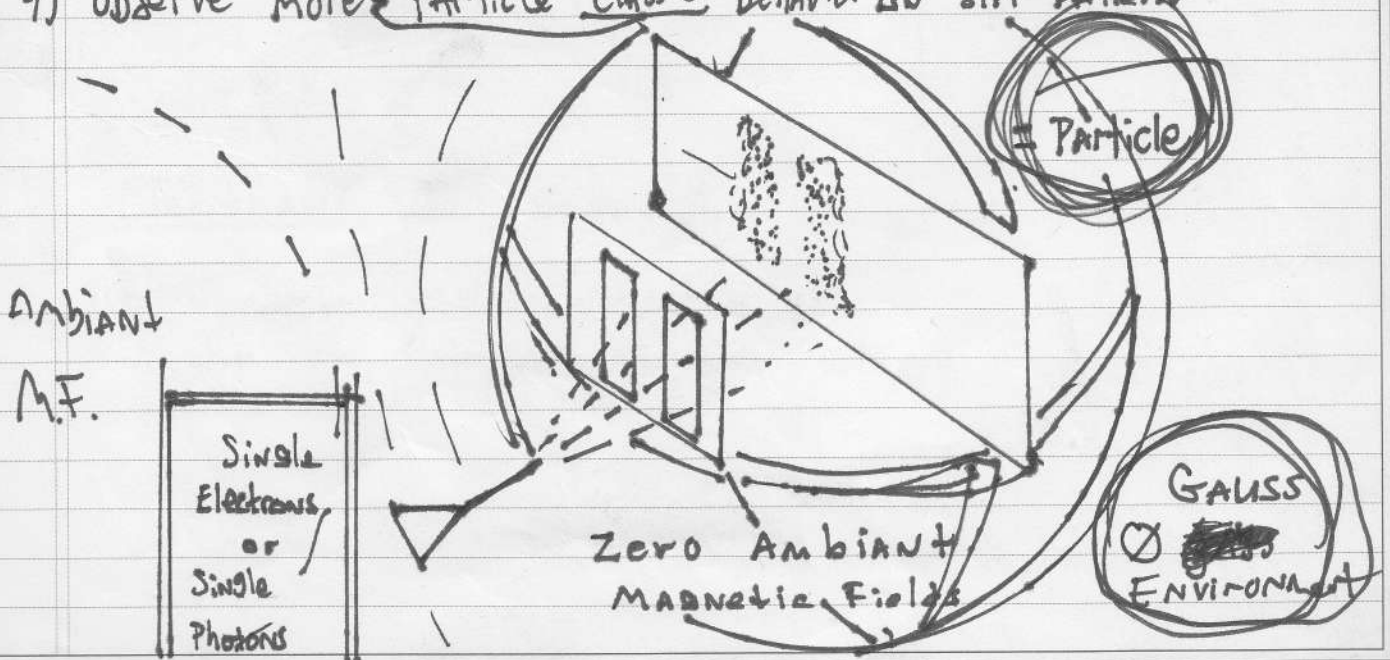 Observe More Particle
= Particle
Ambiant
M.F.
Single
Electrons
or
Single
Photons
Zero Ambiant
Magnetic Fields
GAUSS
Ø
Environment